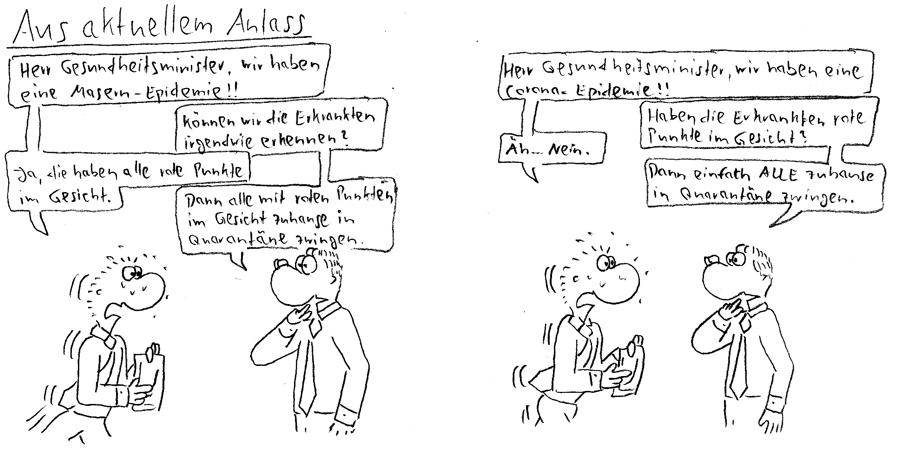 Aus aktuellem Anlass
Herr Gesundheitsminister, wir haben
eine Masern-Epidemie!!
Können wir die Erkrankten
irgendwie erkennen?
Ja, die haben alle rote Punkte
im Gesicht.
Dann alle mit roten Punkten
im Gesicht zuhause in
Quarantäne zwingen.
Herr Gesundheitsminister, wir haben eine
Corona-Epidemie!!
Haben die Erkrankten rote
Punkte im Gesicht?
Äh... Nein.
Dann einfach ALLE zuhause
in Quarantäne zwingen.